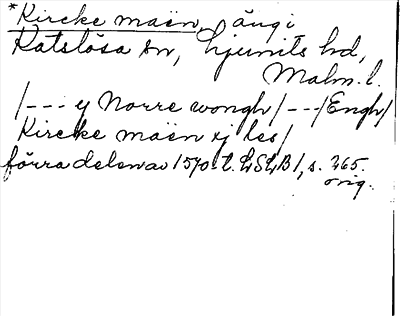 *Kircke maën, äng i
Katslösa sn, Ljunits hd,
Malm. l.
/--- y Norre wongh /---/Engh/
Kircke maën ej les/
förra delen av 1570-t. LSLB 1, s. 265.
orig.